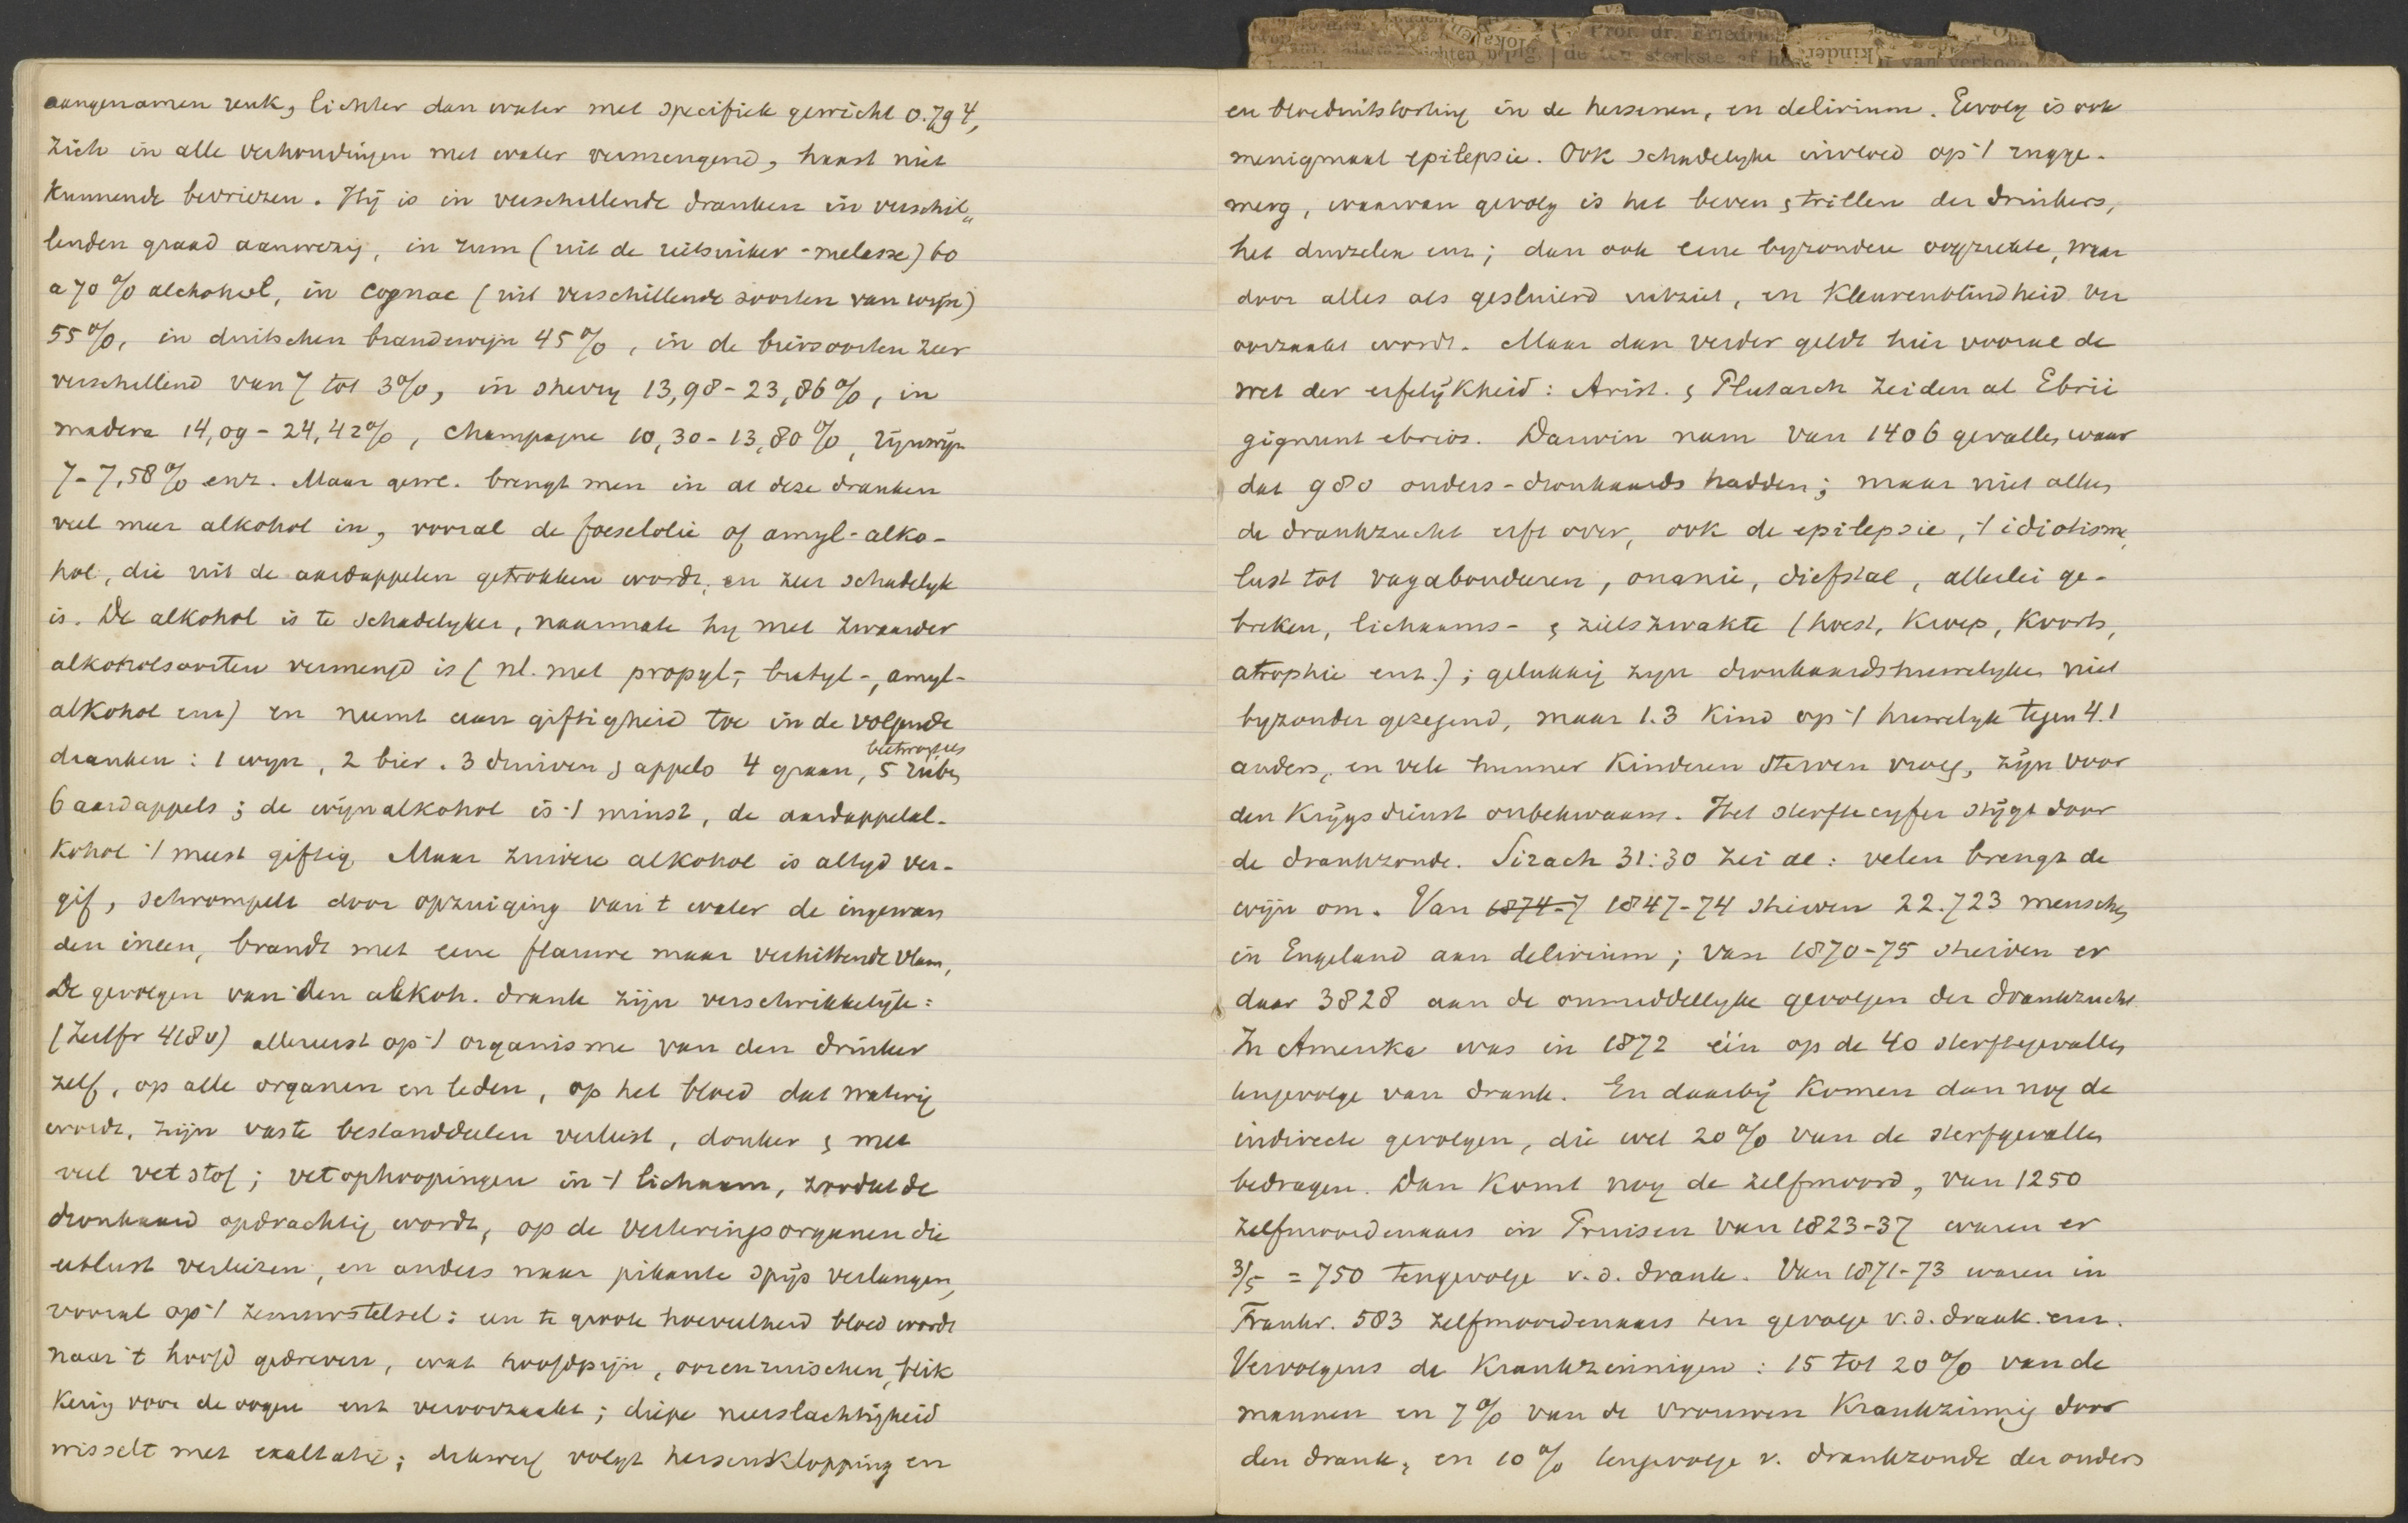 aangenamen reuk, lichter dan water met specifiek gewicht 0.794,
zich in alle verhoudingen met water vermengend, haast niet
kunnende bevriezen. Hij is in verschillende dranken in verschil„
lenden graad aanwezig, in rum (uit de rietsuiker-melasse) 60
a 70% alchohol, in cognac (uit verschillende soorten van wijn)
55%, in duitschen brandewijn 45%, in de biersoorten zeer
verschillend van 7 tot 3%, in sherry 13,98-23,86%, in
madera 14,09-24,42%, champagne 10,30-13,80%, rijnwijn
7-7,58% enz. Maar gew. brengt men in al deze dranken
veel meer alkohol in, vooral de foeselolie of amyl-alko-
hol, die uit de aardappelen getrokken wordt, en zeer schadelyk
is. De alkohol is te schadelyker, naarmate hy met zwaarder
alkoholsoorten vermengd is (nl. met propyl-, butyl-, amyl-
alkohol enz) en neemt aan giftigheid toe in de volgende
dranken: 1 wyn, 2 bier. 3 druiven & appels 4 graan, 5 rüben
6 aardappels; de wijnalkohol is 't minst, de aardappelal-
kohol 't meest giftig. Maar zuivere alkohol is altyd ver-
gif, schrompelt door opzuiging van 't water de ingewan
den ineen, brandt met eene flauwe maar verhittende vlam,
De gevolgen van den alkoh. drank zijn verschrikkelijk:
(Zeitfr 418v) allereerst op 't organisme van den drinker
zelf, op alle organen en leden, op het bloed dat waterig
wordt, zijn vaste bestanddeelen verliest, donker & met
veel vetstof; vetophoopingen in 't lichaam, zoodat de
dronkaard opdrachtig wordt, op de verteringsorganen die
eetlust verliezen, en anders naar pikante spijs verlangen,
vooral op 't zenuwstelsel: een te groote hoeveelheid bloed wordt
naar 't hoofd gedreven, wat hoofdpijn, oorenruischen, flik
kering voor de oogen enz veroorzaakt; diepe neerslachtigheid
wisselt met exaltatie; dikwerf volgt hersenklopping en
en bloeduitstorting in de hersenen, en delirium. Gevolg is ook
menigmaal epilepsie. Ook schadelyke invloed op 't rugge-
merg, waarvan gevolg is het beven & trillen der drinkers,
het duizelen enz; dan ook eene byzondere oogziekte, waar
door alles als gesluierd uitziet, en kleurenblindheid ver
oorzaakt wordt. Maar dan verder geldt hier vooral de
wet der erfelijkheid: Arist. & Plutarch zeiden al Ebrii
gignunt ebrios. Darwin nam van 1406 gevallen waar
dat 980 ouders-dronkaards hadden; maar niet alleen
de drankzucht erft over, ook de epilepsie, 't idiotisme,
lust tot vagabondeeren, onanie, diefstal, allerlei ge-
breken, lichaams- & zielszwakte (hoest, kroep, koorts,
atrophie enz.); gelukkig zyn dronkaardshuwelyken niet
byzonder gezegend, maar 1.3 kind op 't huwelyk tegen 4.1
anders, en vele hunner kinderen sterven vroeg, zijn voor
den krijgsdienst onbekwaam. Het sterftecyfer stijgt door
de drankzonde. Sirach 31:30 zei al: velen brengt de
wijn om. Van 1874-7 1847-74 stierven 22.723 menschen
in Engeland aan delirium; van 1870-75 stierven er
daar 3828 aan de onmiddellyke gevolgen der drankzucht
In Amerika was in 1872 één op de 40 sterftegevallen
tengevolge van drank. En daarbij komen dan nog de
indirecte gevolgen, die wel 20% van de sterfgevallen
bedragen. Dan komt nog de zelfmoord, van 1250
zelfmoordenaars in Pruisen van 1823-37 waren er
3/5 = 750 tengevolge v.d. drank. Van 1871-73 waren in
Frankr. 583 zelfmoordenaars ten gevolge v.d. drank. enz.
Vervolgens de krankzinnigen: 15 tot 20% van de
mannen en 7% van de vrouwen krankzinnig door
den drank, en 10% tengevolge v. drankzonde der ouders